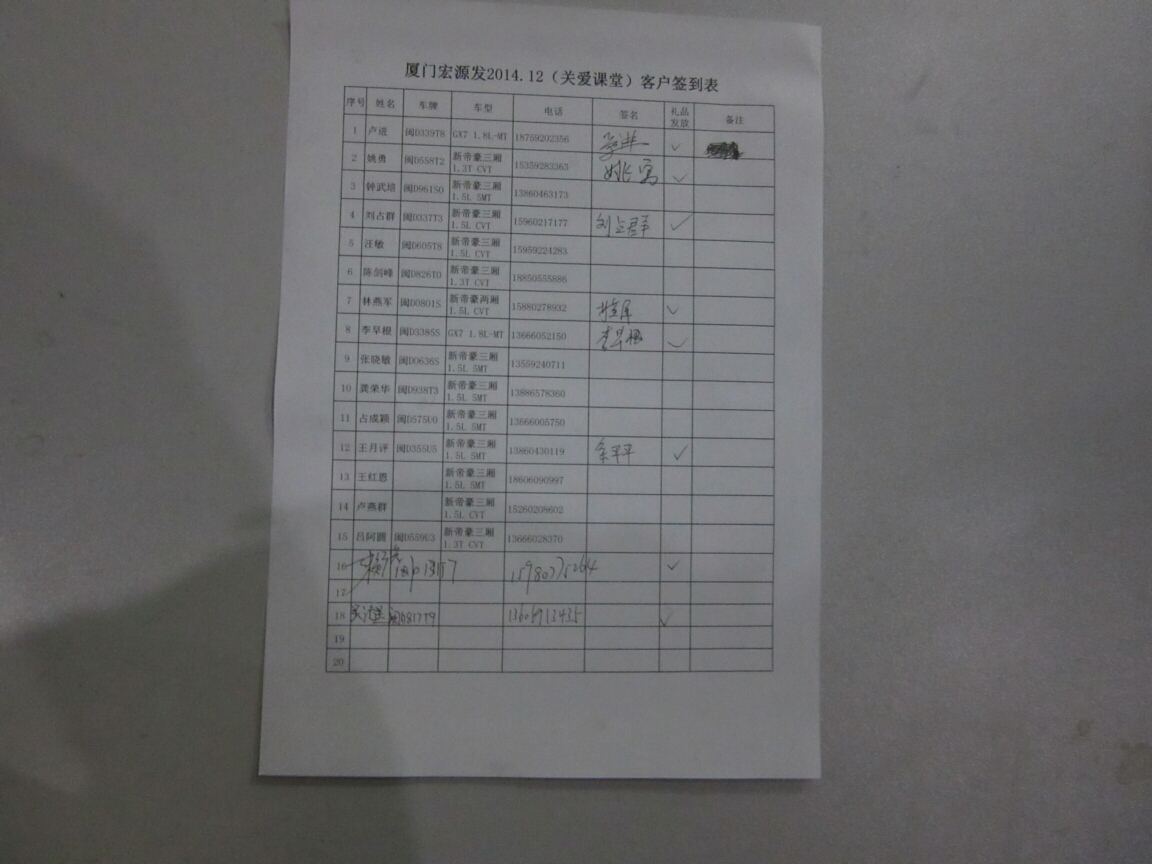 厦门宏源发2014.12（关爱课堂）客户签到表
序号 姓名 车牌 车型 电话 签名 礼品发放 备注
1 卢进 闽D339T8 GX7 1.8L-MT 18759202356 ✓
2 姚勇 闽D558T2 新帝豪三厢 1.3T CVT 15359283363 姚 ✓
3 钟武培 闽D961S0 新帝豪三厢 1.5L 5MT 13860463173
4 刘占群 闽D337T3 新帝豪三厢 1.5L CVT 15960217177 刘占群 ✓
5 汪敏 闽D605T8 新帝豪三厢 1.5L CVT 15959224283
6 陈剑峰 闽D826T0 新帝豪三厢 1.3T CVT 18850555886
7 林燕军 闽D0801S 新帝豪两厢 1.5L CVT 15880278932 ✓
8 李早根 闽D3385S GX7 1.8L-MT 13666052150 李早根 ✓
9 张晓敏 闽D0636S 新帝豪三厢 1.5L 5MT 13559240711
10 龚荣华 闽D938T3 新帝豪三厢 1.5L 5MT 13886578360
11 占成颖 闽D575U0 新帝豪三厢 1.5L 5MT 13666005750
12 王月评 闽D355U5 新帝豪三厢 1.5L 5MT 13860430119 ✓
13 王红恩 新帝豪三厢 1.5L 5MT 18606090997
14 卢燕群 新帝豪三厢 1.5L CVT 15260208602
15 吕阿圆 闽D559U3 新帝豪三厢 1.3T CVT 13666028370
16 ✓
17
18 闽D817T9 ✓
19
20